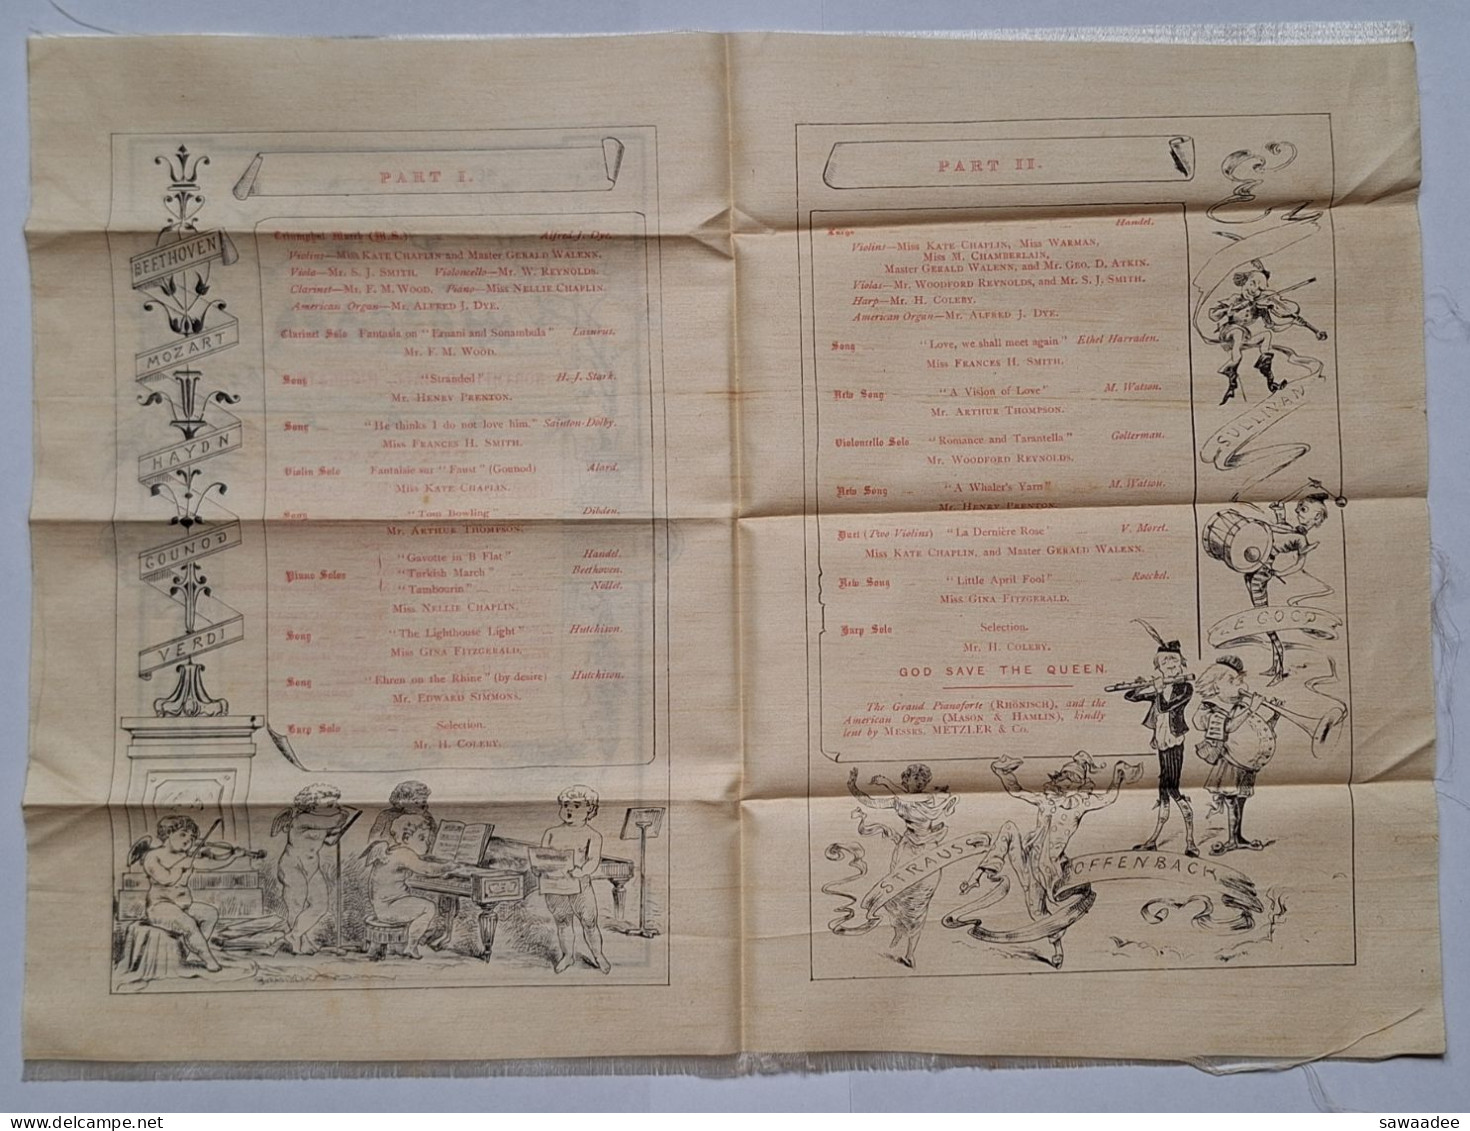 PART I.
Triumphal March (M.S.) Alfred J. Dye.
Violins—Miss KATE CHAPLIN and Master GERALD WALENN.
Viola—Mr. S. J. SMITH. Violoncello—Mr. W. REYNOLDS.
Clarinet—Mr. F. M. WOOD. Piano—Miss NELLIE CHAPLIN.
American Organ—Mr. ALFRED J. DYE.
Clarinet Solo Fantasia on "Ernani and Sonambula" Lazurus.
Mr. F. M. WOOD.
Song "Stranded" H. J. Stark.
Mr. HENRY PRENTON.
Song "He thinks I do not love him." Sainton-Dolby.
Miss FRANCES H. SMITH.
Violin Solo Fantaisie sur "Faust" (Gounod) Alard.
Miss KATE CHAPLIN.
Song "Tom Bowling" Dibden.
Mr. ARTHUR THOMPSON.
"Gavotte in B Flat" Handel.
Piano Solos "Turkish March" Beethoven.
"Tambourin" Nollet.
Miss NELLIE CHAPLIN.
Song "The Lighthouse Light" Hutchison.
Miss GINA FITZGERALD.
Song "Ehren on the Rhine" (by desire) Hutchison.
Mr. EDWARD SIMMONS.
Harp Solo Selection.
Mr. H. COLEBY.
BEETHOVEN
MOZART
HAYDN
GOUNOD
VERDI
PART II.
Largo Handel.
Violins—Miss KATE CHAPLIN, Miss WARMAN,
Miss M. CHAMBERLAIN,
Master GERALD WALENN, and Mr. GEO. D. ATKIN.
Violas—Mr. WOODFORD REYNOLDS, and Mr. S. J. SMITH.
Harp—Mr. H. COLEBY.
American Organ—Mr. ALFRED J. DYE.
Song "Love, we shall meet again" Ethel Harraden.
Miss FRANCES H. SMITH.
New Song "A Vision of Love" M. Watson.
Mr. ARTHUR THOMPSON.
Violoncello Solo "Romance and Tarantella" Golterman.
Mr. WOODFORD REYNOLDS.
New Song "A Whaler's Yarn" M. Watson.
Mr. HENRY PRENTON.
Duet (Two Violins) "La Dernière Rose" V. Moret.
Miss KATE CHAPLIN, and Master GERALD WALENN.
New Song "Little April Fool" Roeckel.
Miss GINA FITZGERALD.
Harp Solo Selection.
Mr. H. COLEBY.
GOD SAVE THE QUEEN.
The Grand Pianoforte (RHÖNISCH), and the
American Organ (MASON & HAMLIN), kindly
lent by MESSRS. METZLER & Co.
SULLIVAN
LECOCQ
STRAUSS
OFFENBACH
sawaadee